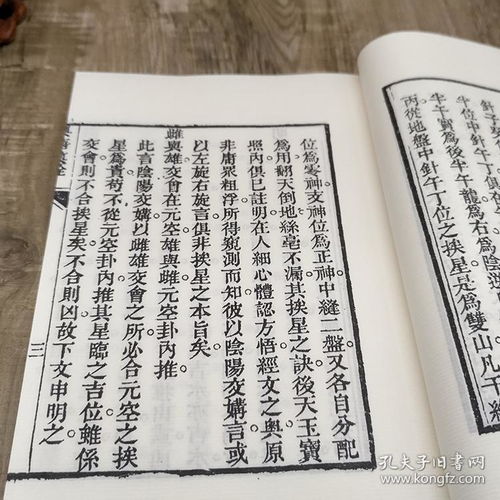 半午實為後半午龍為右為陰
丙從地盤中針午丁位之挨星是為雙山凡
位為零神支神位為正神中縫二盤又各自分配
為用翻天倒地絲毫不漏其挨星之訣後天玉寶
照內俱已註明在人細心體認方悟經文之奧原
非庸衆粗浮所得窺測而知彼以陰陽交媾言或
以左旋右旋言俱非挨星之本旨矣。
雌與雄交會在元空雄與雌元空卦內推
此言陰陽交媾以雌雄交會之所必合元空之挨
星為貴苟不從元空卦內推其星臨之吉位雖係
交會則不合挨星矣不合則凶故下文申明之
三
孔夫子旧书网
kongfz.com